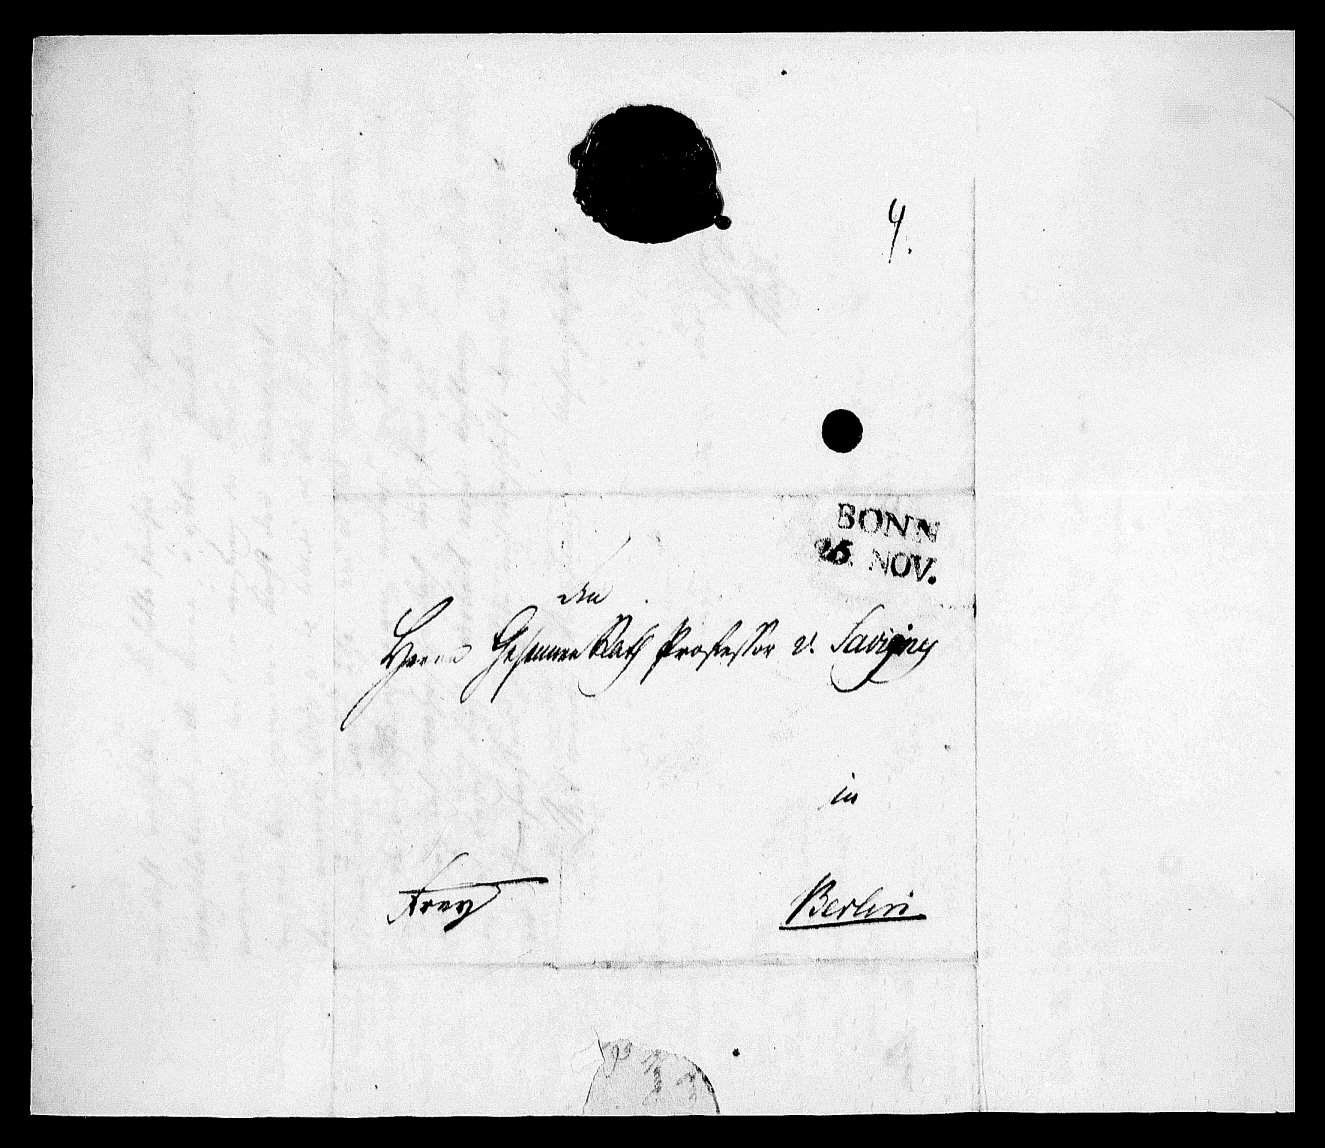 4.
BONN
25. NOV.
den
Herrn Geheimen Rath Professor v. Savigny
in
Berlin
Frey